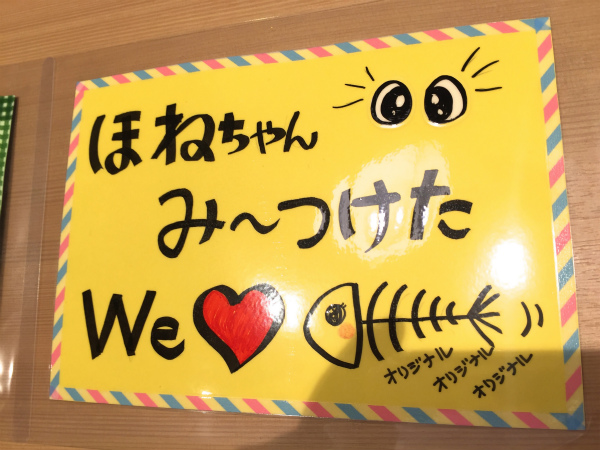 ほねちゃん
み〜つけた
We
オリジナル
オリジナル
オリジナル